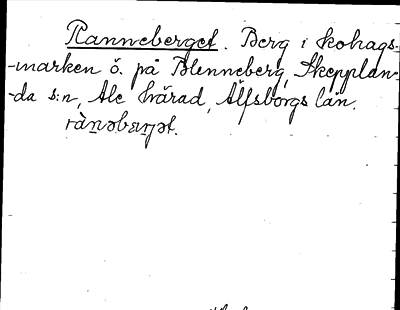 Ranneberget. Berg i kohags-
-marken ö. på Blenneberg, Skepplan-
-da s:n, Ale härad, Älfsborgs län.